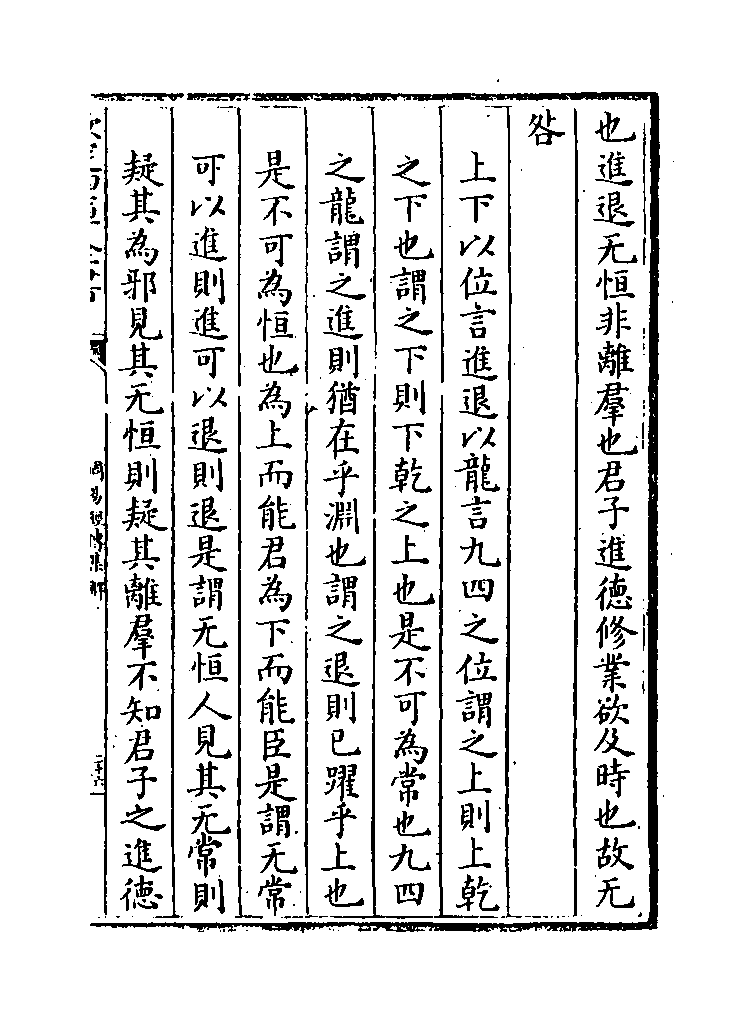 也進退无恒非離羣也君子進德修業欲及時也故无
咎
上下以位言進退以龍言九四之位謂之上則上乾
之下也謂之下則下乾之上也是不可為常也九四
之龍謂之進則猶在乎淵也謂之退則已躍乎上也
是不可為恒也為上而能君為下而能臣是謂无常
可以進則進可以退則退是謂无恒人見其无常則
疑其為邪見其无恒則疑其離羣不知君子之進德